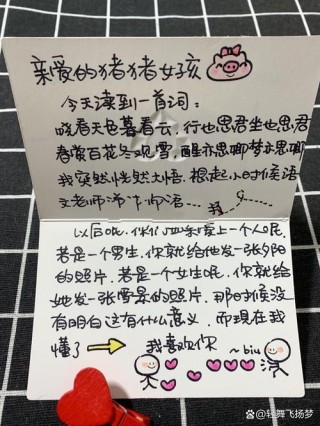 亲爱的猪猪女孩
今天读到一首词：
晓看天色暮看云，行也思君坐也思君
春赏百花冬观雪，醒亦思卿梦亦思卿
我突然恍然大悟．想起小时候语
文老师谆谆师语……
以后呢．你们如果爱上一个人呢．
若是一个男生．你就给他发一张夕阳
的照片．若是一个女生呢．你就给
她发一张雪景的照片．那时候没
有明白这有什么意义．而现在我
懂了 我喜欢你 ~biu
@轻舞飞扬梦